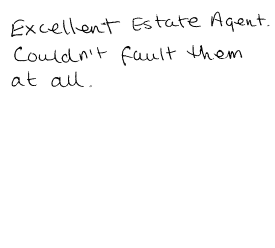 Excellent Estate Agent.
Couldn't fault them
at all.